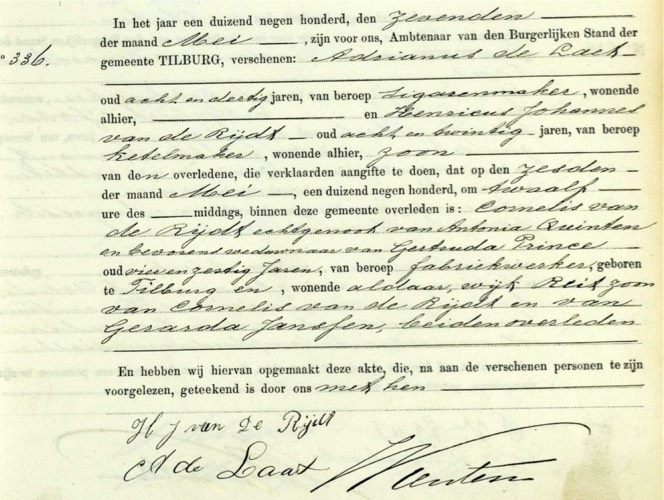 In het jaar een duizend negen honderd, den zevenden
° 336. der maand Mei, zijn voor ons, Ambtenaar van den Burgerlijken Stand der
gemeente TILBURG, verschenen: Adrianus de Laat
oud acht en dertig jaren, van beroep sigarenmaker, wonende
alhier, en Henricus Johannes
van de Rijdt oud acht en twintig jaren, van beroep
ketelmaker, wonende alhier, zoon
van den overledene, die verklaarden aangifte te doen, dat op den zesden
der maand Mei, een duizend negen honderd, om twaalf
ure des middags, binnen deze gemeente overleden is: Cornelis van
de Rijdt echtgenoot van Antonia Quinten
en bevorens weduwnaar van Gertruda Prince
oud vier en zestig Jaren, van beroep fabriekwerker, geboren
te Tilburg en, wonende aldaar, wijk Reit zoon
van Cornelis van de Rijdt en van
Gerarda Janssen, beiden overleden
En hebben wij hiervan opgemaakt deze akte, die, na aan de verschenen personen te zijn
voorgelezen, geteekend is door ons met hen
H J van De Rijdt
A de Laat